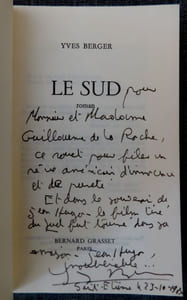 YVES BERGER
LE SUD
pour
roman
Monsieur et Madame
Guillaume de La Roche,
ce roman pour
rêve américain d'innocence
et de pureté.
Et dans le souvenir de
Jean Hugo le film tiré
du Sud fut tourné dans sa
BERNARD GRASSET
PARIS
maison Jean Hugo,
Saint-Étienne